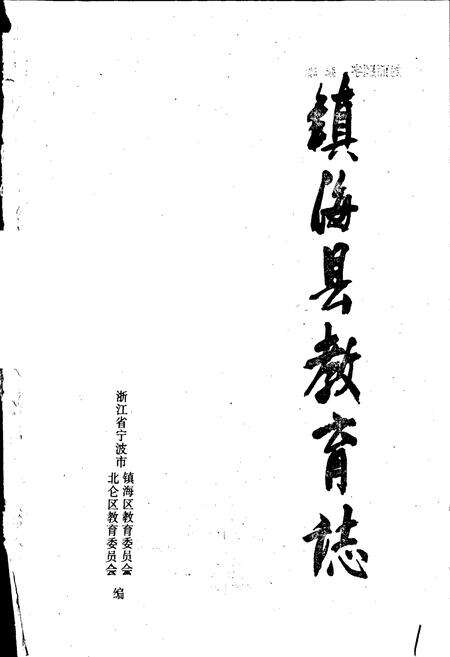 镇海县教育誌
浙江省宁波市
镇海区教育委员会
北仑区教育委员会
编